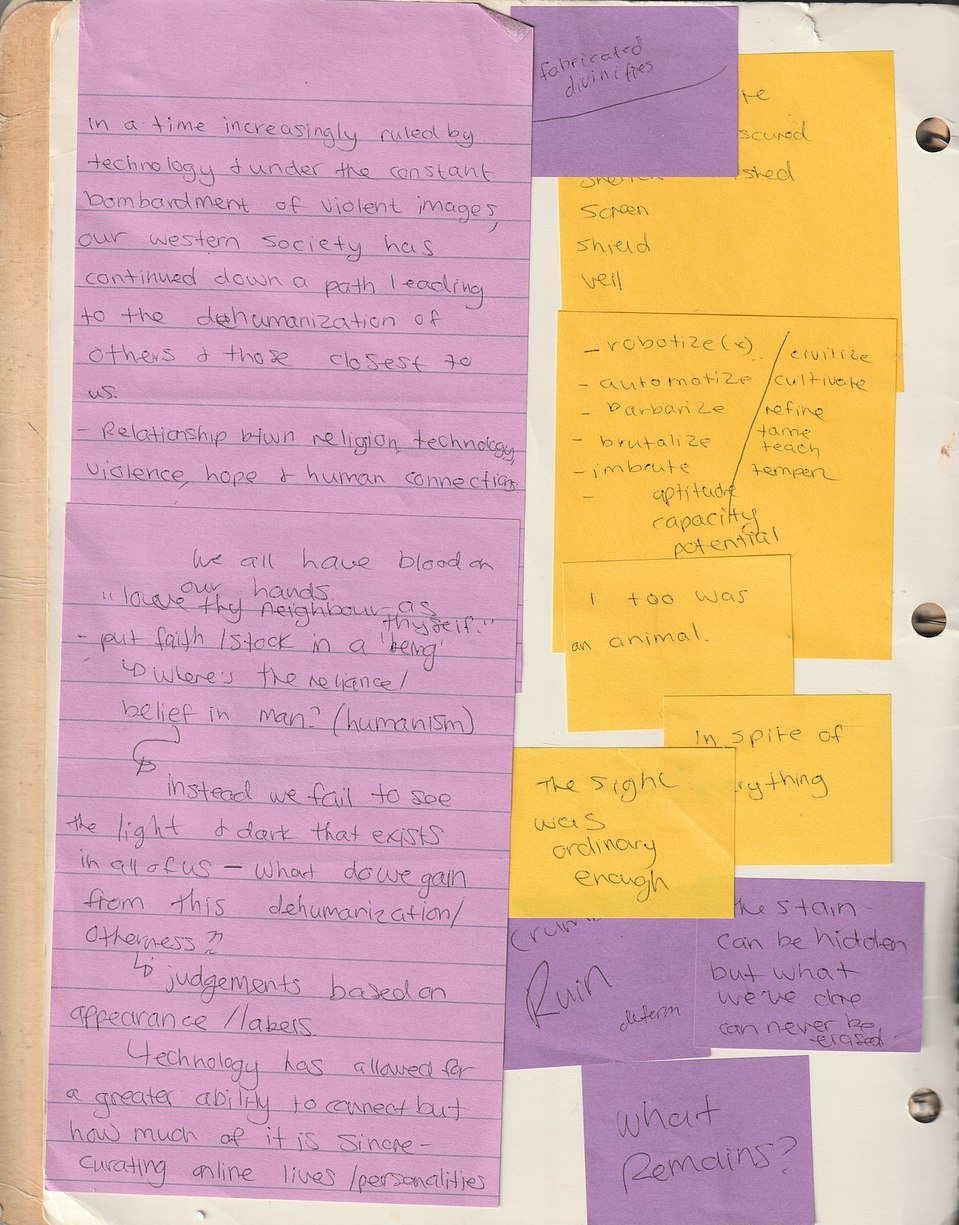 in a time increasingly ruled by
technology & under the constant
bombardment of violent images,
our western society has
continued down a path leading
to the dehumanization of
others & those closest to
us.
- Relationship btwn religion, technology,
violence, hope & human connections.
We all have blood on
our hands
"love thy neighbour as
thyself."
- put faith / stock in a 'being'
↳ where's the reliance /
belief in man? (humanism)
instead we fail to see
the light & dark that exists
in all of us – what do we gain
from this dehumanization /
otherness??
↳ judgements based on
appearance / labels.
↳ technology has allowed for
a greater ability to connect but
how much of it is sincre-
curating online lives / personalities
fabricated
divinities
scured
shed
screen
shield
veil
- robotize (x)
- automatize
- barbarize
- brutalize
- imbrute
-
civilize
cultivate
refine
tame
teach
temper
aptitude
capacity
potential
I too was
an animal.
In spite of
rything
The sight
was
ordinary
enough
Ruin
determ
the stain
can be hidden
but what
we've done
can never be
erased.
What
Remains?